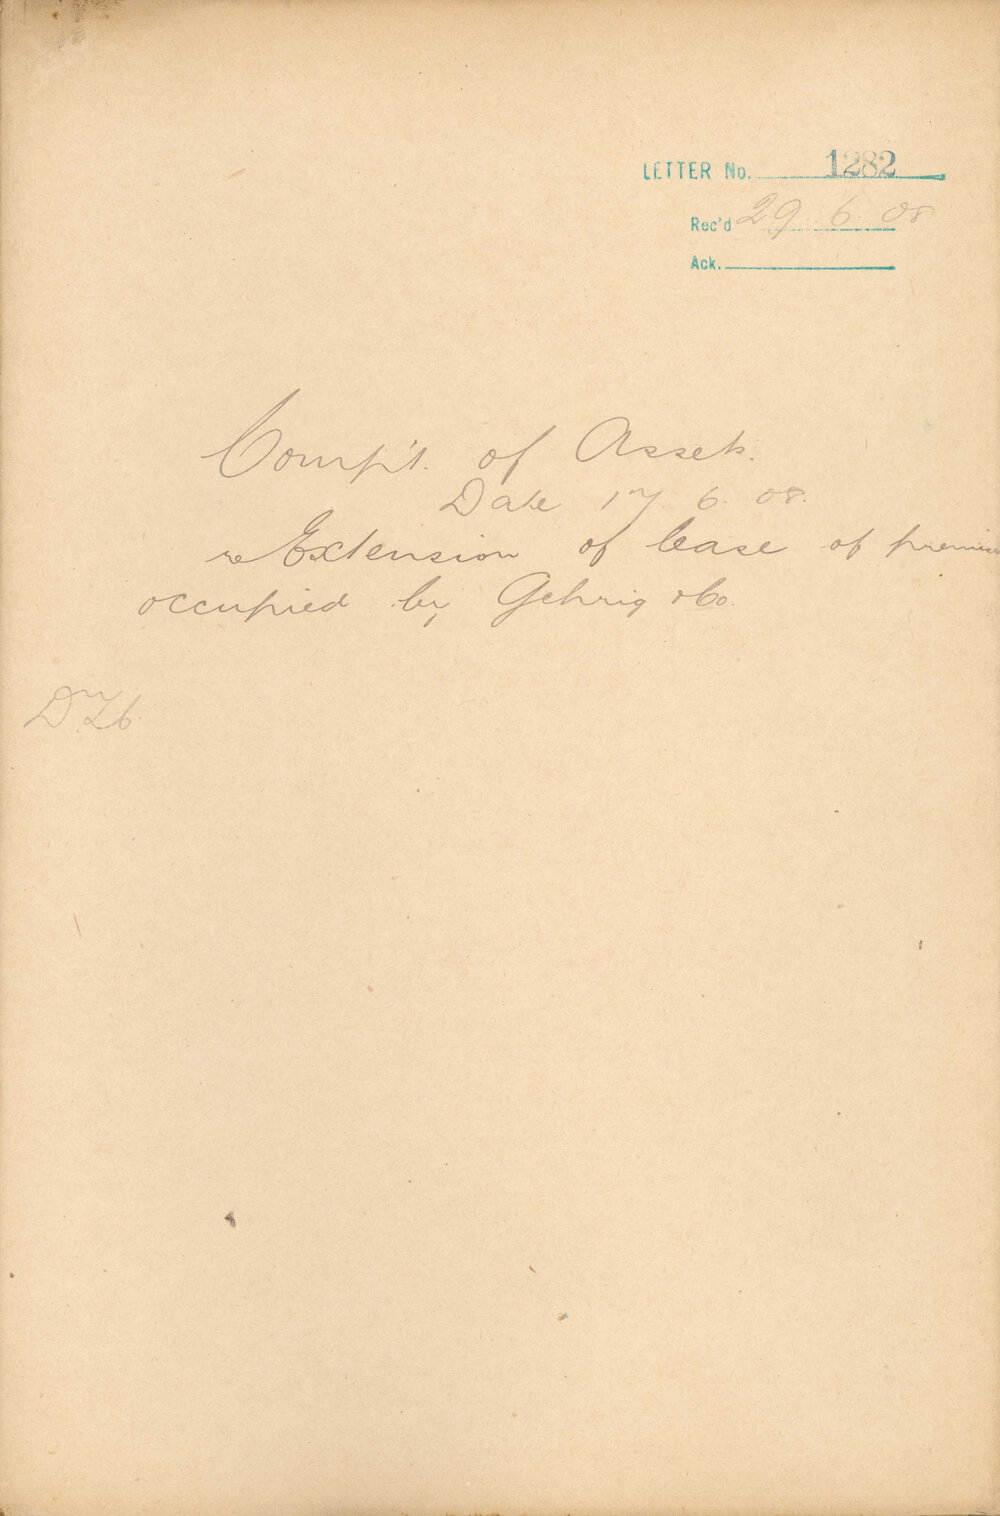 LETTER No. 1282
Rec'd 29. 6. 08
Ack.
Comp't. of Assets.
Date 17. 6. 08.
re Extension of lease of premises
occupied by Gehrig & Co.